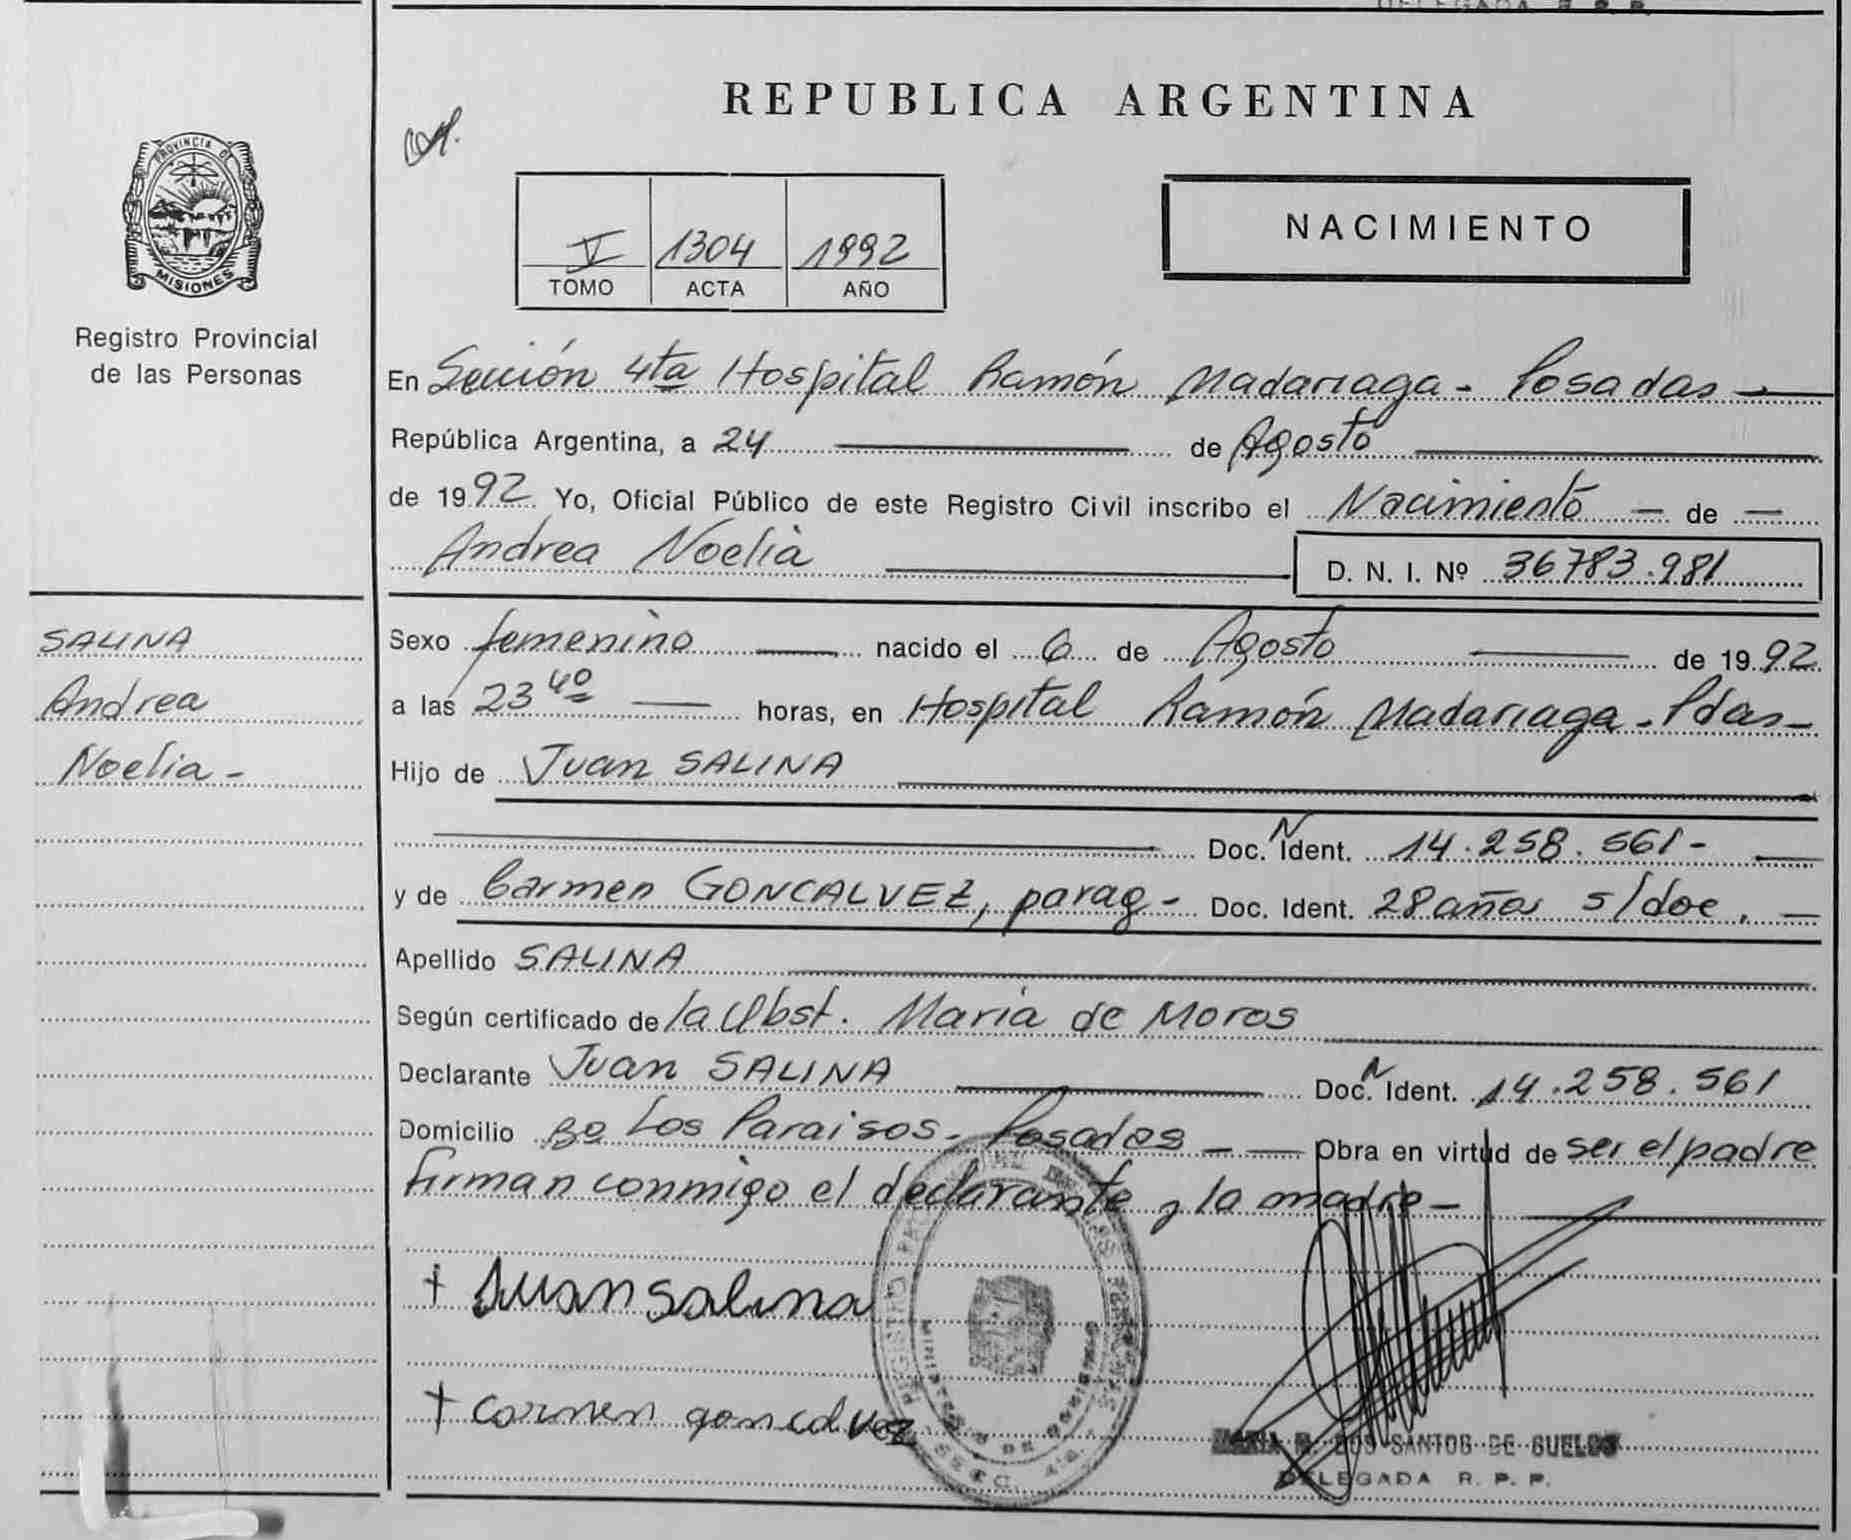 REPUBLICA ARGENTINA
PROVINCIA DE
MISIONES
Registro Provincial
de las Personas
V 1304 1992
TOMO ACTA AÑO
NACIMIENTO
En Sección 4ta Hospital Ramón Madariaga - Posadas -
República Argentina, a 24 de Agosto
de 1992 Yo, Oficial Público de este Registro Civil inscribo el Nacimiento - de -
Andrea Noelia D. N. I. Nº 36783.981
SALINA
Andrea
Noelia -
Sexo femenino nacido el 6 de Agosto de 1992
a las 23 40 horas, en Hospital Ramón Madariaga - Pdas -
Hijo de Juan SALINA
Doc. N Ident. 14.258.561 -
y de Carmen GONCALVEZ, parag - Doc. Ident. 28 años s/doc. -
Apellido SALINA
Según certificado de la Obst. Maria de Moros
Declarante Juan SALINA Doc. N Ident. 14.258.561
Domicilio Bo Los Paraisos - Posadas - - Obra en virtud de ser el padre
firman conmigo el declarante y la madre -
+ Juan salina
+ carmen goncalvez
DOS SANTOS DE
DELEGADA R. P. P.